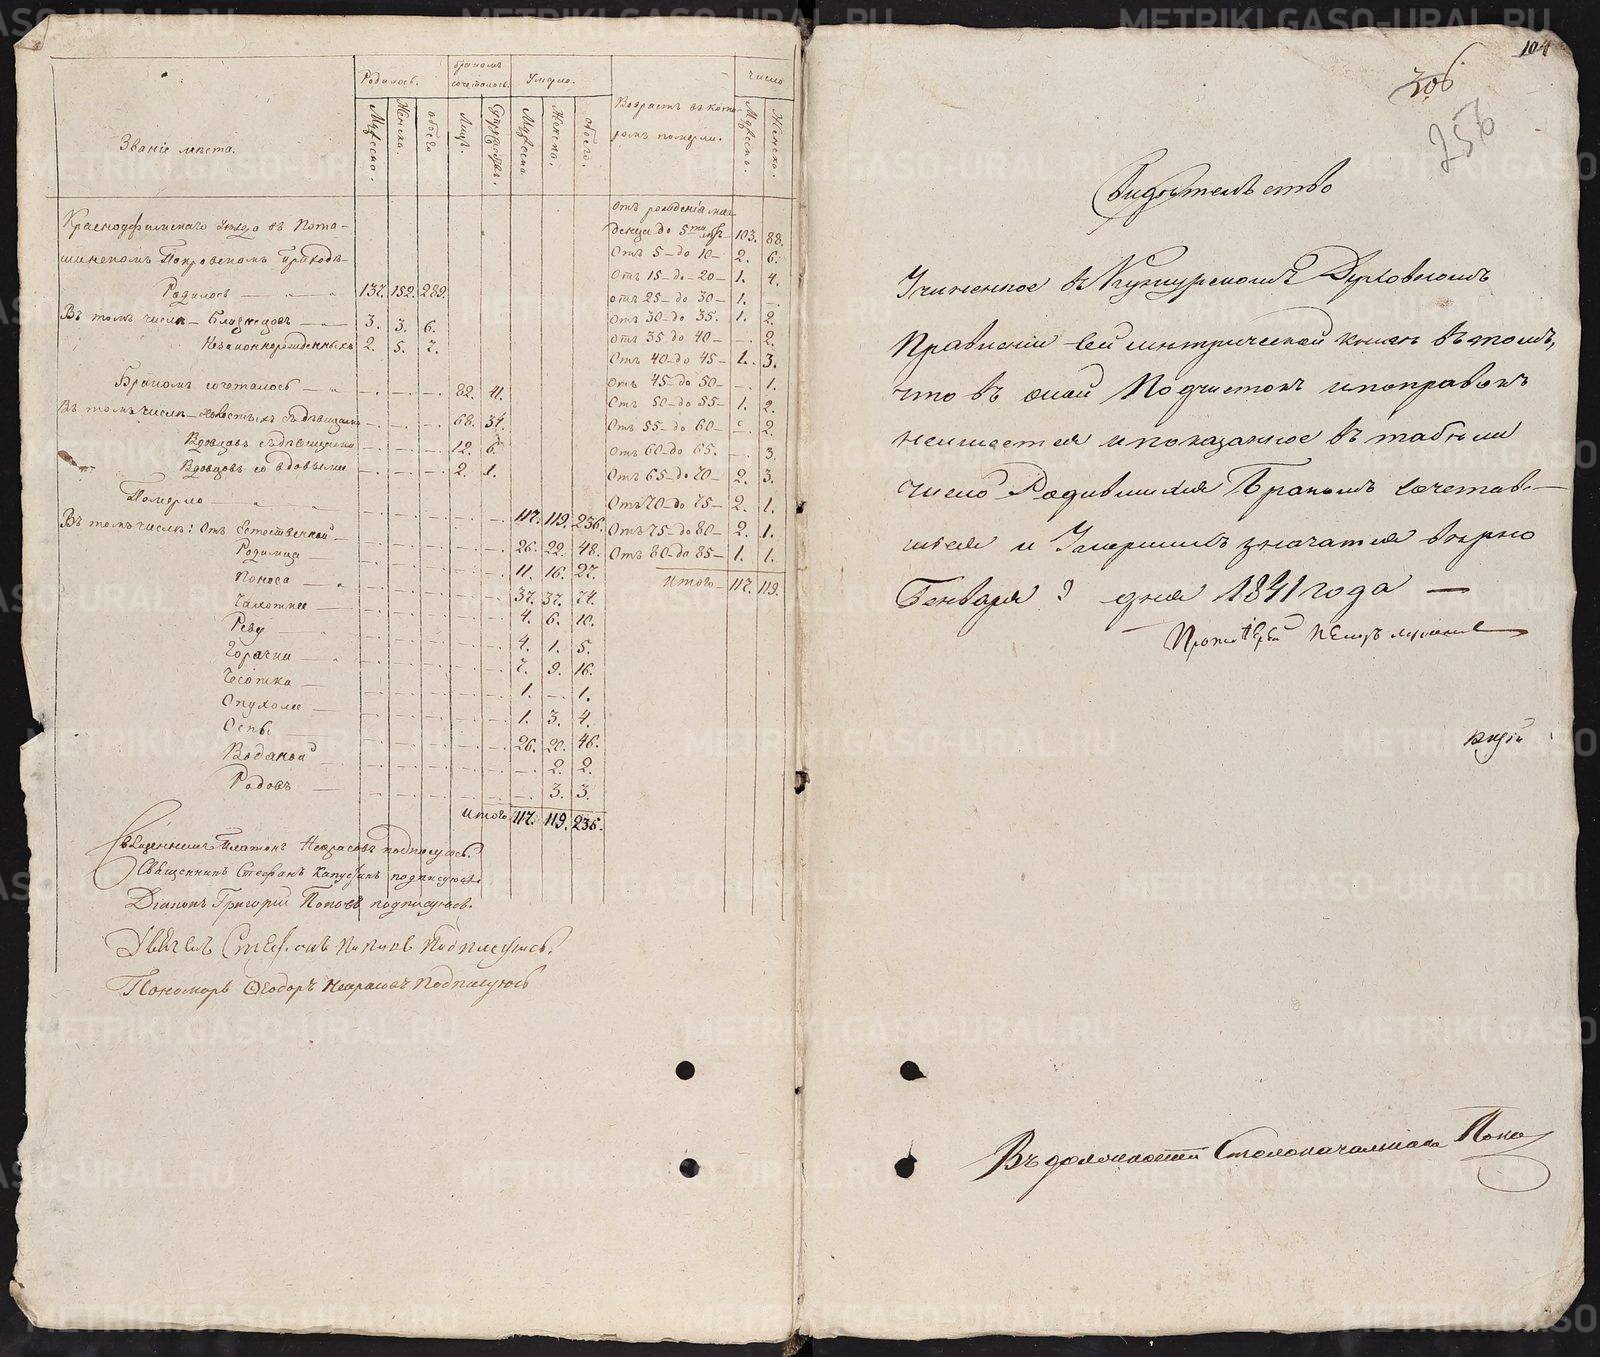 Званіе мѣста.
Родилось.
Бракомъ сочеталось.
Умерло.
Возрастъ въ кото-
ромъ померли.
Число
Мужеска.
Женска.
обоего
Лицъ.
Мужеска.
Женска.
обоего.
Мужеска.
Женска.
Красноуфимскаго уезда въ Пота-
шинскомъ Покровскомъ приходѣ
Родилось — 137. 152. 289.
Въ томъ числѣ — близнецовъ — 3. 3. 6.
Незаконнорожденныхъ 2. 5. 7.
Бракомъ сочеталось — 82. 41.
Въ томъ числѣ — холостыхъ съ дѣвицами 68. 34.
Вдовцовъ съ дѣвицами 12. 6.
Вдовцовъ со вдовыми 2. 1.
Померло 117. 119. 236.
Въ томъ числѣ: Отъ Естественной 26. 22. 48.
Родимца 11. 16. 27.
Поноса — 37. 37. 74.
Чахотки — 4. 6. 10.
Реву 4. 1. 5.
Горячки — 7. 9. 16.
Чесотка — 1. — 1.
Опухоли — 1. 3. 4.
Оспы 26. 20. 46.
Водяной — 2. 2.
Родовъ — 3. 3.
Итого 117. 119. 236.
Отъ рожденія мла-
денца до 5ти лѣт 103. 88.
Отъ 5 — до 10 — 2. 6.
Отъ 15 — до — 20 — 1. 4.
Отъ 25 — до 30 — 1. —
Отъ 30 — до 35. 1. 2.
Отъ 35 до 40 — — 2.
Отъ 40 — до 45 — 1. 3.
Отъ 45 — до 50 — — 1.
Отъ 50 — до 55 — 1. 2.
Отъ 55 — до 60 — — 2.
Отъ 60 — до 65. — 3.
Отъ 65 — до 70 — 2. 3.
Отъ 70 — до 75 — 2. 1.
Отъ 75 — до 80 — 2. 1.
Отъ 80 — до 85 — 1. 1.
Итого — 117. 119.
Священникъ Платонъ Некрасовъ подписуюсь.
Священникъ Стефанъ Капустинъ подписуюсь.
Діаконъ Григорій Поповъ подписуюсь.
Дьячекъ Стефанъ Поповъ Подписуюсь.
Пономарь Ѳеодоръ Некрасовъ Подписуюсь
104
306
256
Свидѣтельство
Учиненное въ Кунгурскомъ Духовномъ
Правленіи сей метрической книгѣ въ томъ,
что въ оной Подчистокъ и поправокъ
неимеется и показанное въ табели
число Родившихся Бракомъ сочетав-
шихся и Умершихъ значатся вѣрно
Генваря дня 1841 года —
Протоіерей
Въ должности Столоначальника Попо
METRIKI.GASO-URAL.RU